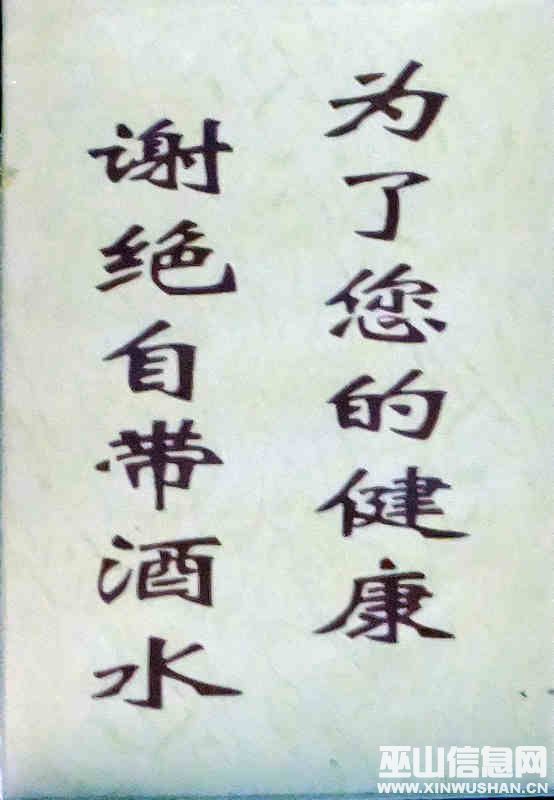 为了您的健康
谢绝自带酒水
巫山信息网
WWW.XINWUSHAN.CN